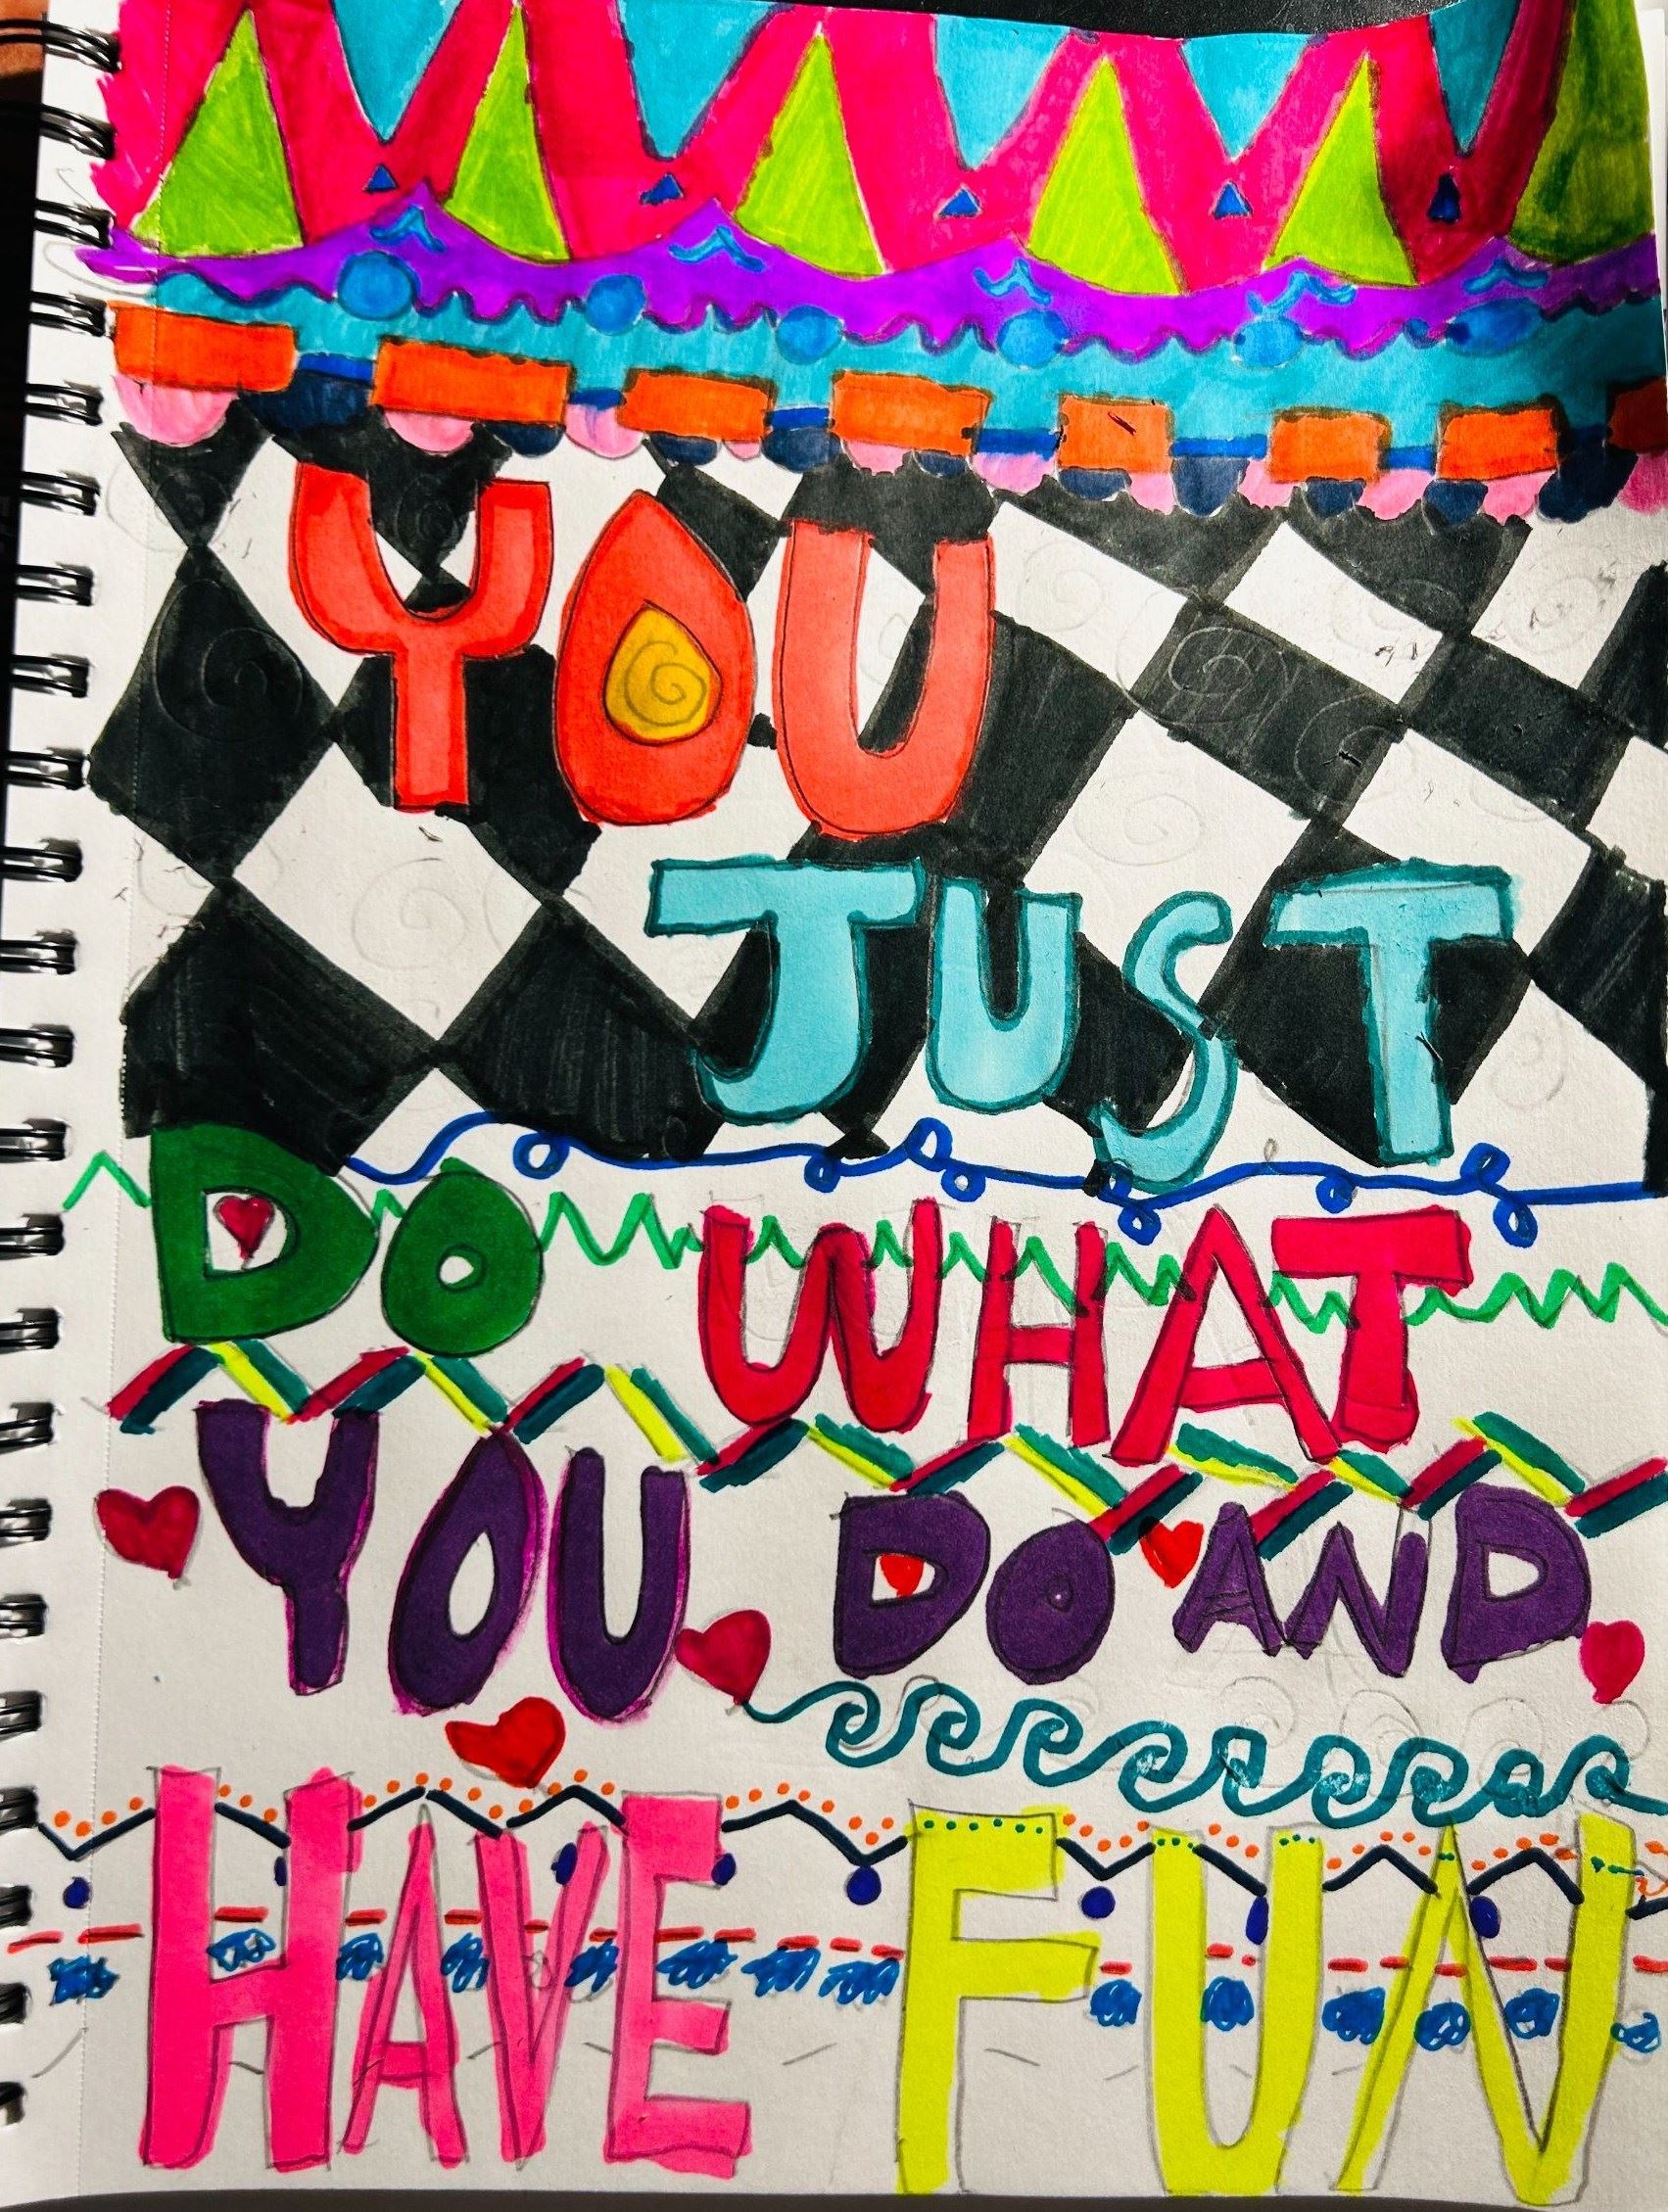 YOU
JUST
DO WHAT
YOU DO AND
HAVE FUN